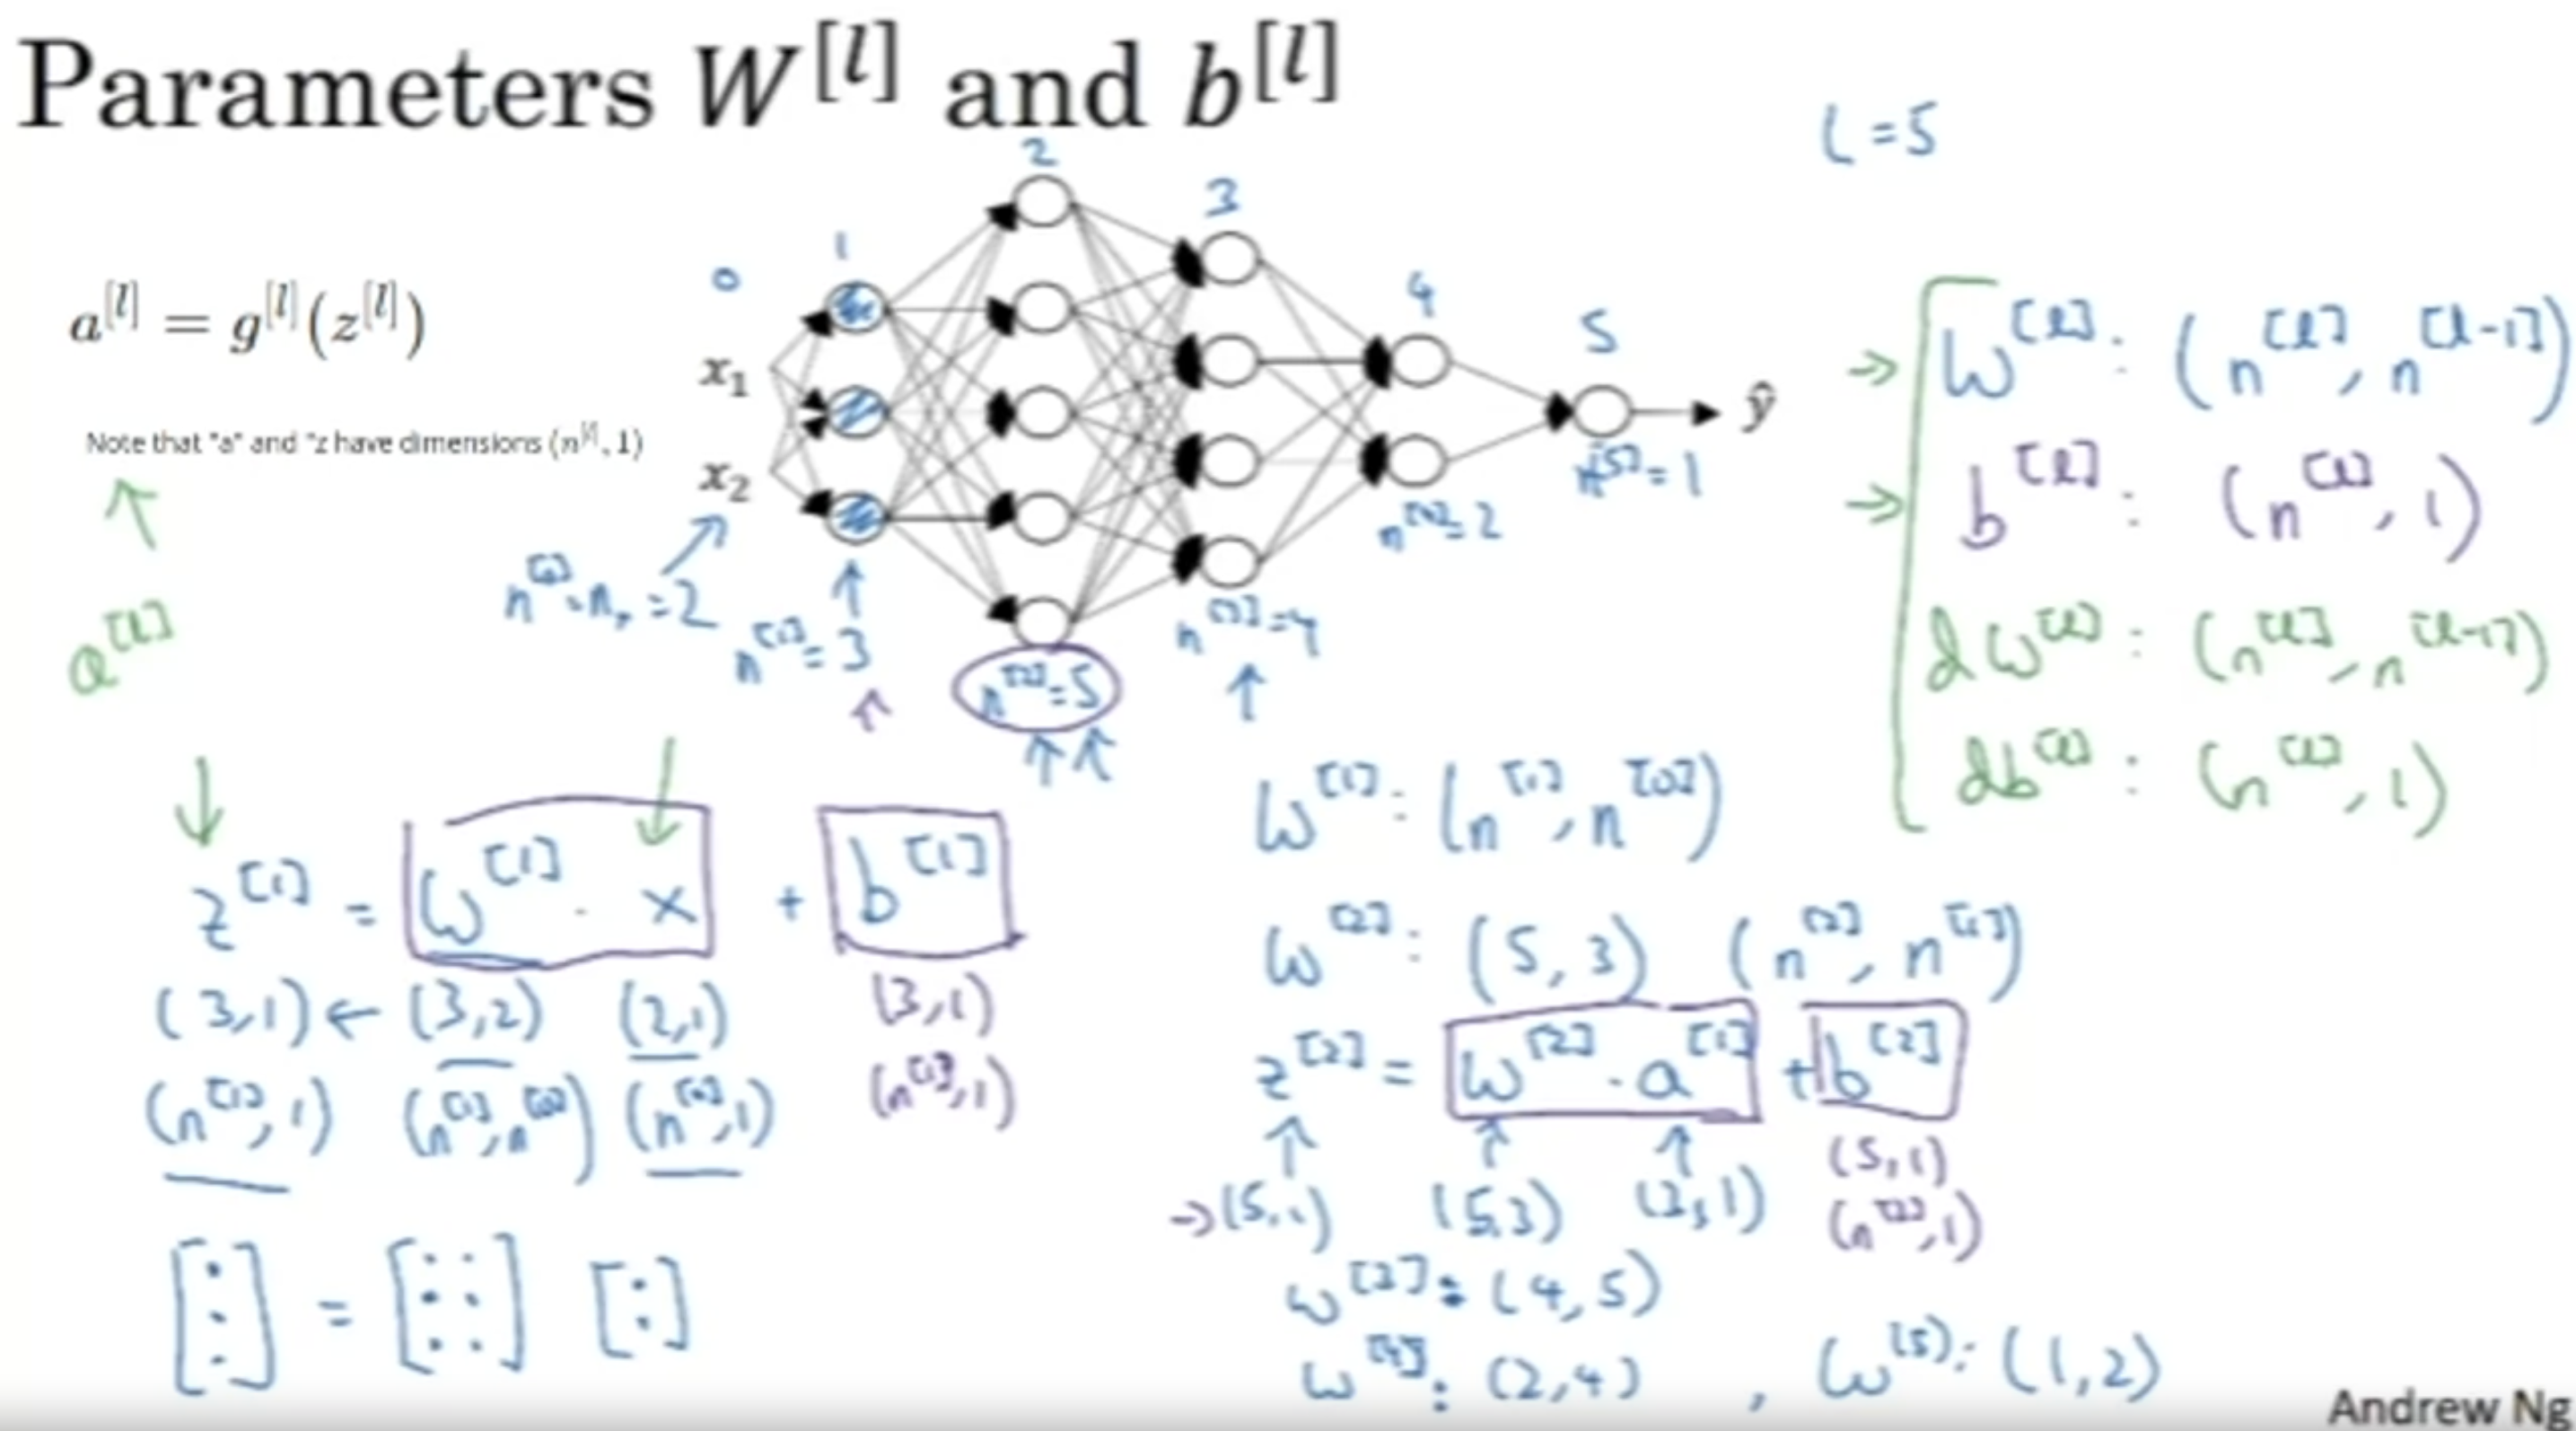 Parameters W^[l] and b^[l]
L = 5
0 1 2 3 4 5
a^[l] = g^[l](z^[l])
Note that "a" and "z have dimensions (n^[l], 1)
a^[l]
x₁
x₂
ŷ
n^[0] = nₓ = 2
n^[1] = 3
n^[2] = 5
n^[3] = 4
n^[4] = 2
n^[5] = 1
W^[l] : (n^[l], n^[l-1])
b^[l] : (n^[l], 1)
dW^[l] : (n^[l], n^[l-1])
db^[l] : (n^[l], 1)
z^[1] = W^[1] · x + b^[1]
(3,1) ← (3,2) (2,1) (3,1)
(n^[1], 1) (n^[1], n^[0]) (n^[0], 1) (n^[1], 1)
[⋮] = [: : :] [:]
W^[1] : (n^[1], n^[0])
W^[2] : (5, 3) (n^[2], n^[1])
z^[2] = W^[2] · a^[1] + b^[2]
→ (5,1) (5,3) (3,1) (5,1)
(n^[2], 1)
W^[3] : (4, 5)
W^[4] : (2,4) , W^[5] : (1,2)
Andrew Ng